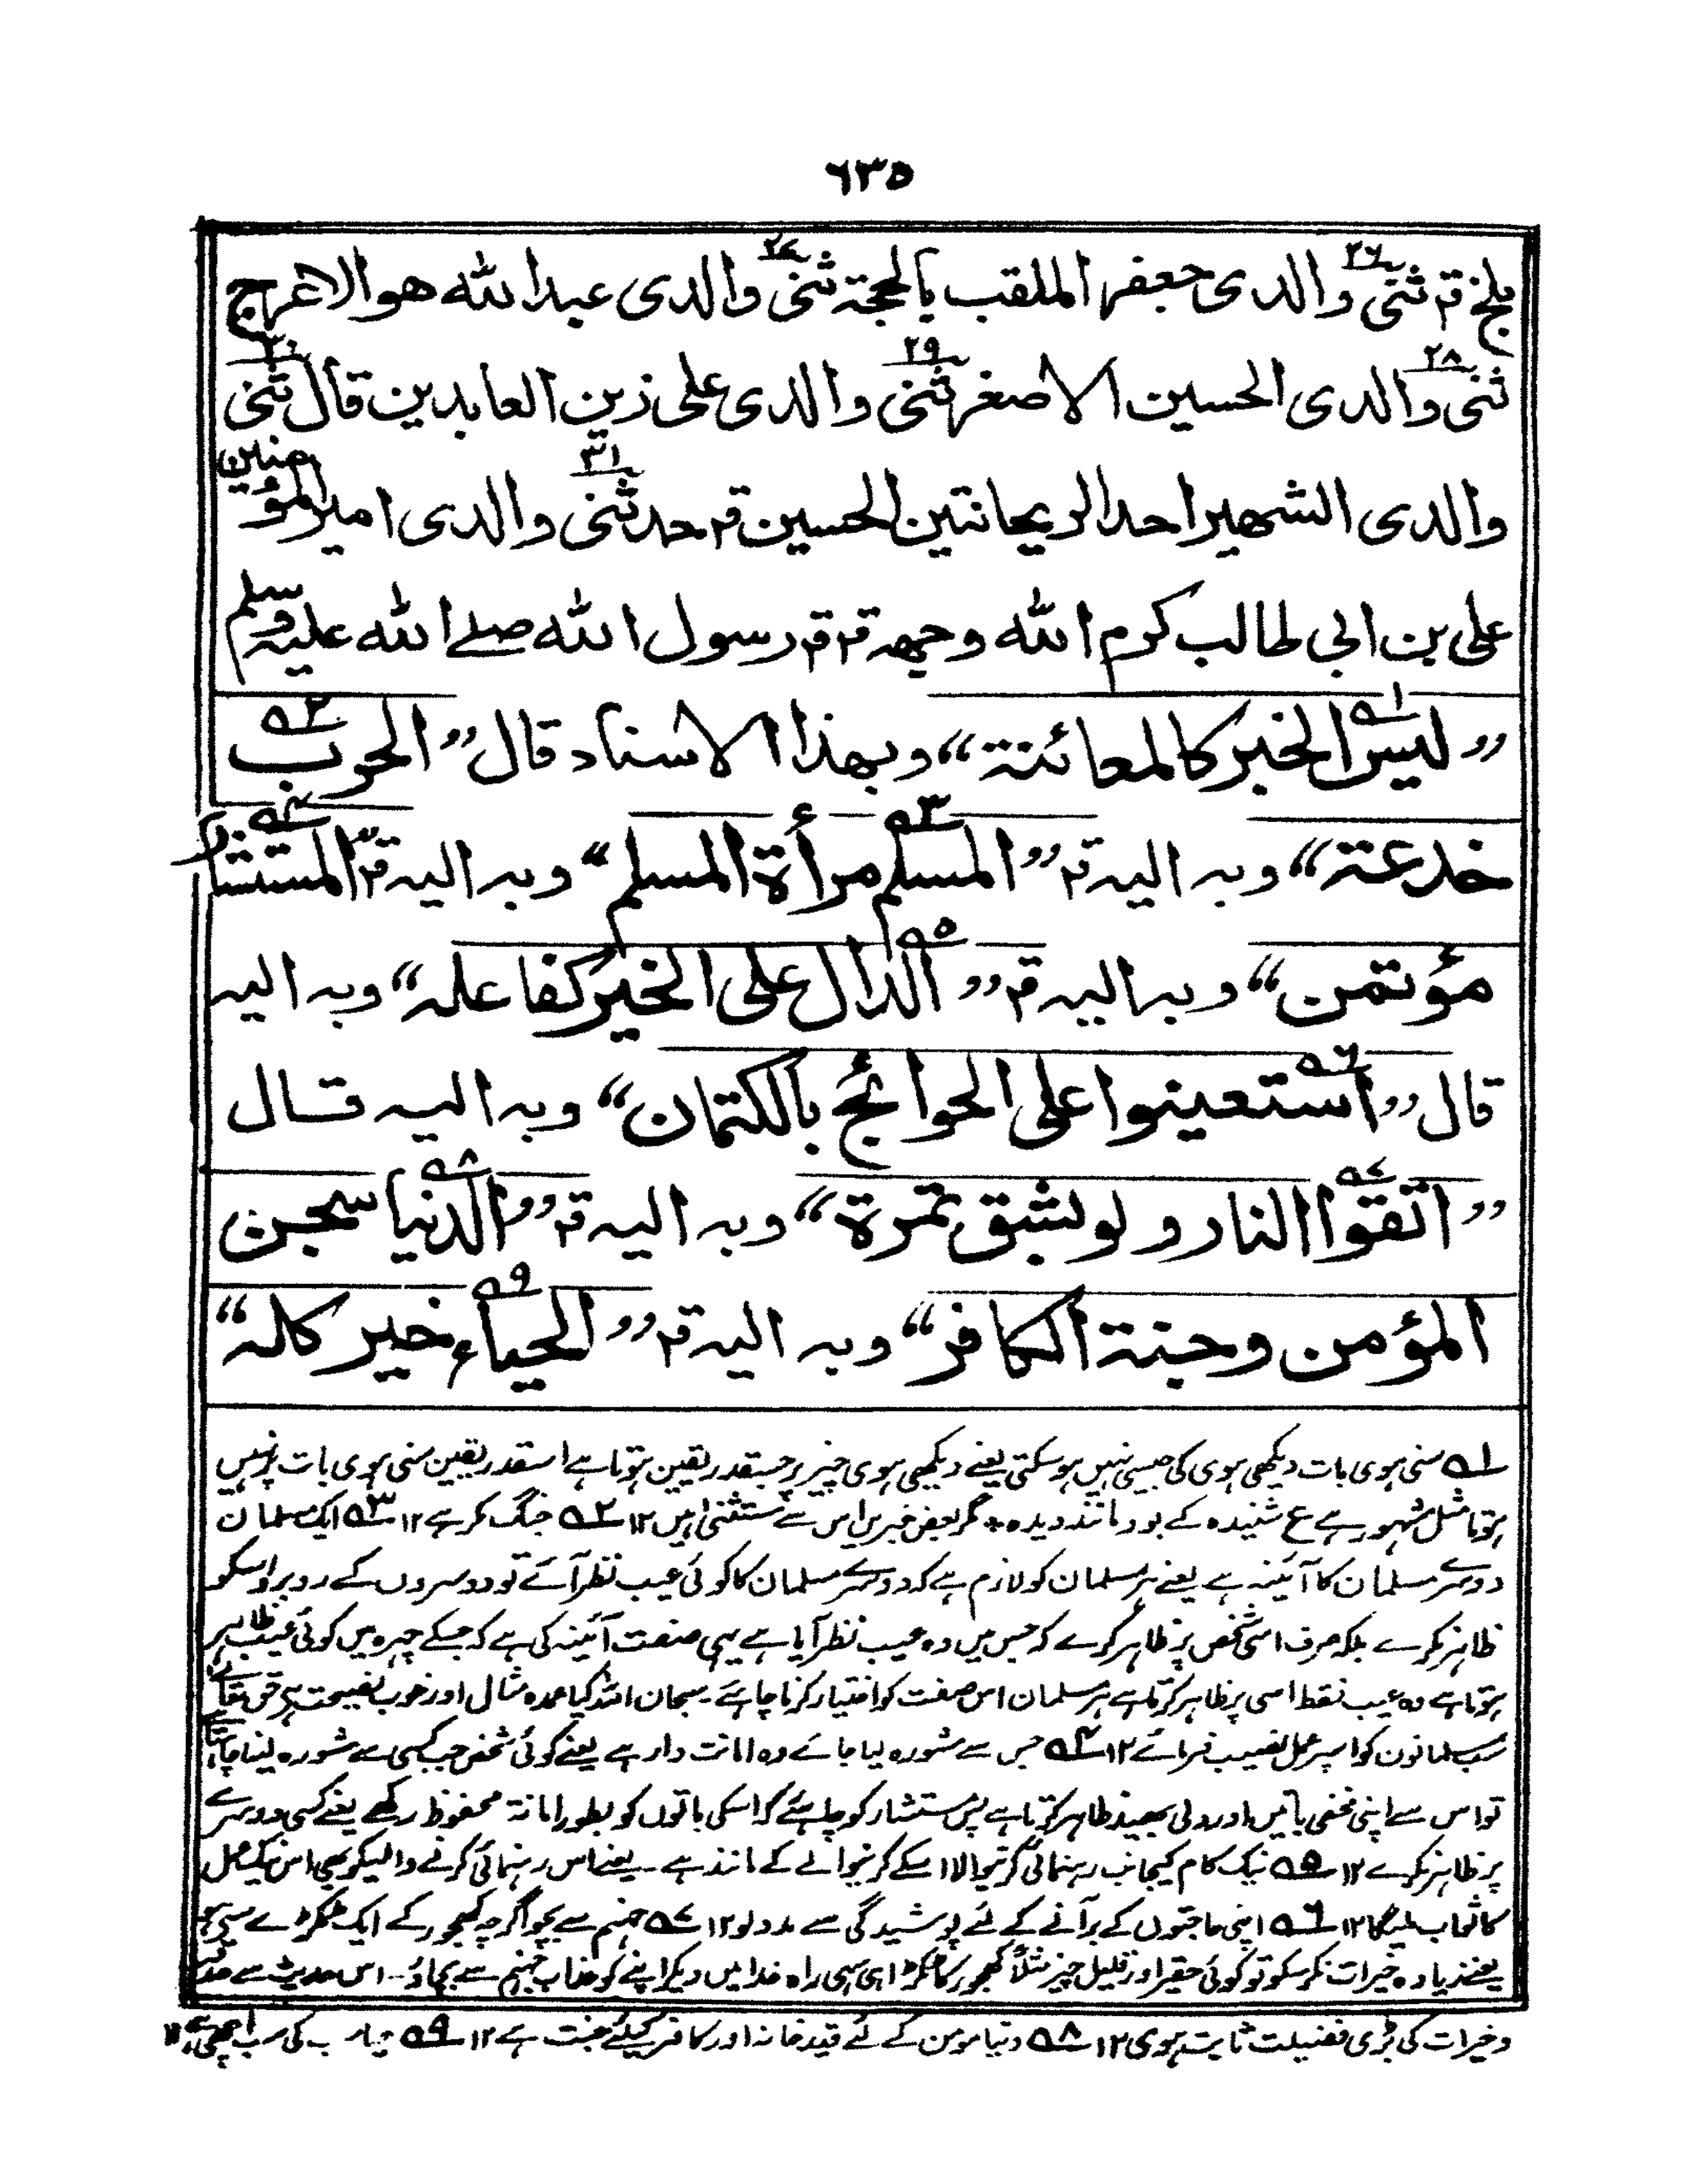 ٦٣٥
بلخ قم ثنی والدی جعفر الملقب بالحجۃ ثنی والدی عبداللہ هوالاعرج
٢٦ ٢٧
ثنی والدی الحسین الاصغر ثنی والدی علی زین العابدین قال ثنی
٢٨ ٢٩ ٣٠
والدی الشهیر احد الریحانتین الحسین قم حدثنی والدی امیرالمؤمنین
٣١
علی بن ابی طالب کرم اللہ وجهہ قم قم رسول اللہ صلے اللہ علیہ وسلم
”لیس الخبر کالمعائنۃ“ وبهذا الاسناد قال ”الحرب
خدعۃ“ وبہ الیہ قم ”المسلم مرأۃ المسلم“ وبہ الیہ قم ”المستشار
مؤتمن“ وبہ الیہ قم ”الدال علی الخیر کفاعلہ“ وبہ الیہ
قال ”استعینوا علی الحوائج بالکتمان“ وبہ الیہ قال
”اتقوا النار ولو بشق تمرۃ“ وبہ الیہ قم ”الدنیا سجن
المؤمن وجنۃ الکافر“ وبہ الیہ قم ”الحیاء خیر کلہ“
۱ سنی ہوی بات دیکھی ہوی کی جیسی نہیں ہوسکتی یعنے دیکھی ہوی چیز پر جسقدر یقین ہوتا ہے اسقدر یقین سنی ہوی بات پر نہیں
ہوتا مثل مشہور ہے ع شنیدہ کے بود مانند دیدہ ٭ مگر بعض خبریں اس سے مستثنیٰ ہیں ۱۲ ۲ جنگ مکر ہے ۱۲ ۳ ایک مسلمان
دوسرے مسلمان کا آئینہ ہے یعنے ہر مسلمان کو لازم ہے کہ دوسرے مسلمان کا کوئی عیب نظر آئے تو دوسروں کے روبرو اسکو
ظاہر نکرے بلکہ صرف اسی شخص پر ظاہر کرے کہ جس میں وہ عیب نظر آیا ہے یہی صفت آئینہ کی ہے کہ جسکے چہرہ میں کوئی عیب ظاہر
ہوتا ہے وہ عیب فقط اسی پر ظاہر کرتا ہے ہر مسلمان اس صفت کو اختیار کرنا چاہئے۔ سبحان اللہ کیا عمدہ مثال اور خوب نصیحت ہے حق تعالے
سب مسلمانوں کو اسپر عمل نصیب فرمائے ۱۲ ۴ جس سے مشورہ لیا جائے وہ امانت دار ہے یعنے کوئی شخص جب کسی سے مشورہ لینا چاہتا ہے
تو اس سے اپنی مخفی باتیں اور دلی بھید ظاہر کرتا ہے پس مستشار کو چاہئے کہ اسکی باتوں کو بطور امانۃ محفوظ رکھے یعنے کسی دوسرے
پر ظاہر نکرے ۱۲ ۵ نیک کام کیجانب رہنمائی کرنیوالا اسکے کرنیوالے کے مانند ہے۔ یعنے اس رہنمائی کرنے والیکو بھی اس نیک عمل
کا ثواب ملیگا ۱۲ ۶ اپنی حاجتوں کے برآنے کے لئے پوشیدگی سے مدد لو ۱۲ ۷ جہنم سے بچو اگرچہ کھجور کے ایک ٹکڑے سے ہی ہو
یعنے زیادہ خیرات نکرسکو تو کوئی حقیر اور قلیل چیز مثلاً کھجور کا ٹکڑا ہی سہی راہ خدا میں دیکر اپنے کو عذاب جہنم سے بچاؤ۔ اس حدیث سے صدقہ
وخیرات کی بڑی فضیلت ثابت ہوی ۱۲ ۸ دنیا مومن کے لئے قیدخانہ اور کافر کیلئے جنت ہے ۱۲ ۹ حیا سب کی سب اچھی ہے ۱۲